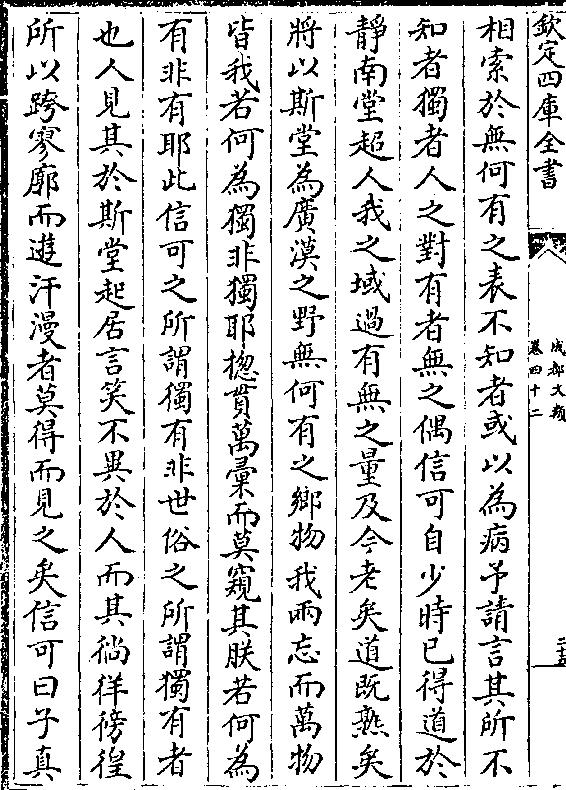 欽定四庫全書
成都文類
卷四十二
二十五
相索於無何有之表不知者或以為病予請言其所不
知者獨者人之對有者無之偶信可自少時已得道於
靜南堂超人我之域過有無之量及今老矣道既熟矣
將以斯堂為廣漠之野無何有之鄉物我兩忘而萬物
皆我若何為獨非獨耶揔貫萬彚而莫窺其朕若何為
有非有耶此信可之所謂獨有非世俗之所謂獨有者
也人見其於斯堂起居言笑不異於人而其徜徉徬徨
所以跨寥廓而遊汗漫者莫得而見之矣信可曰子真